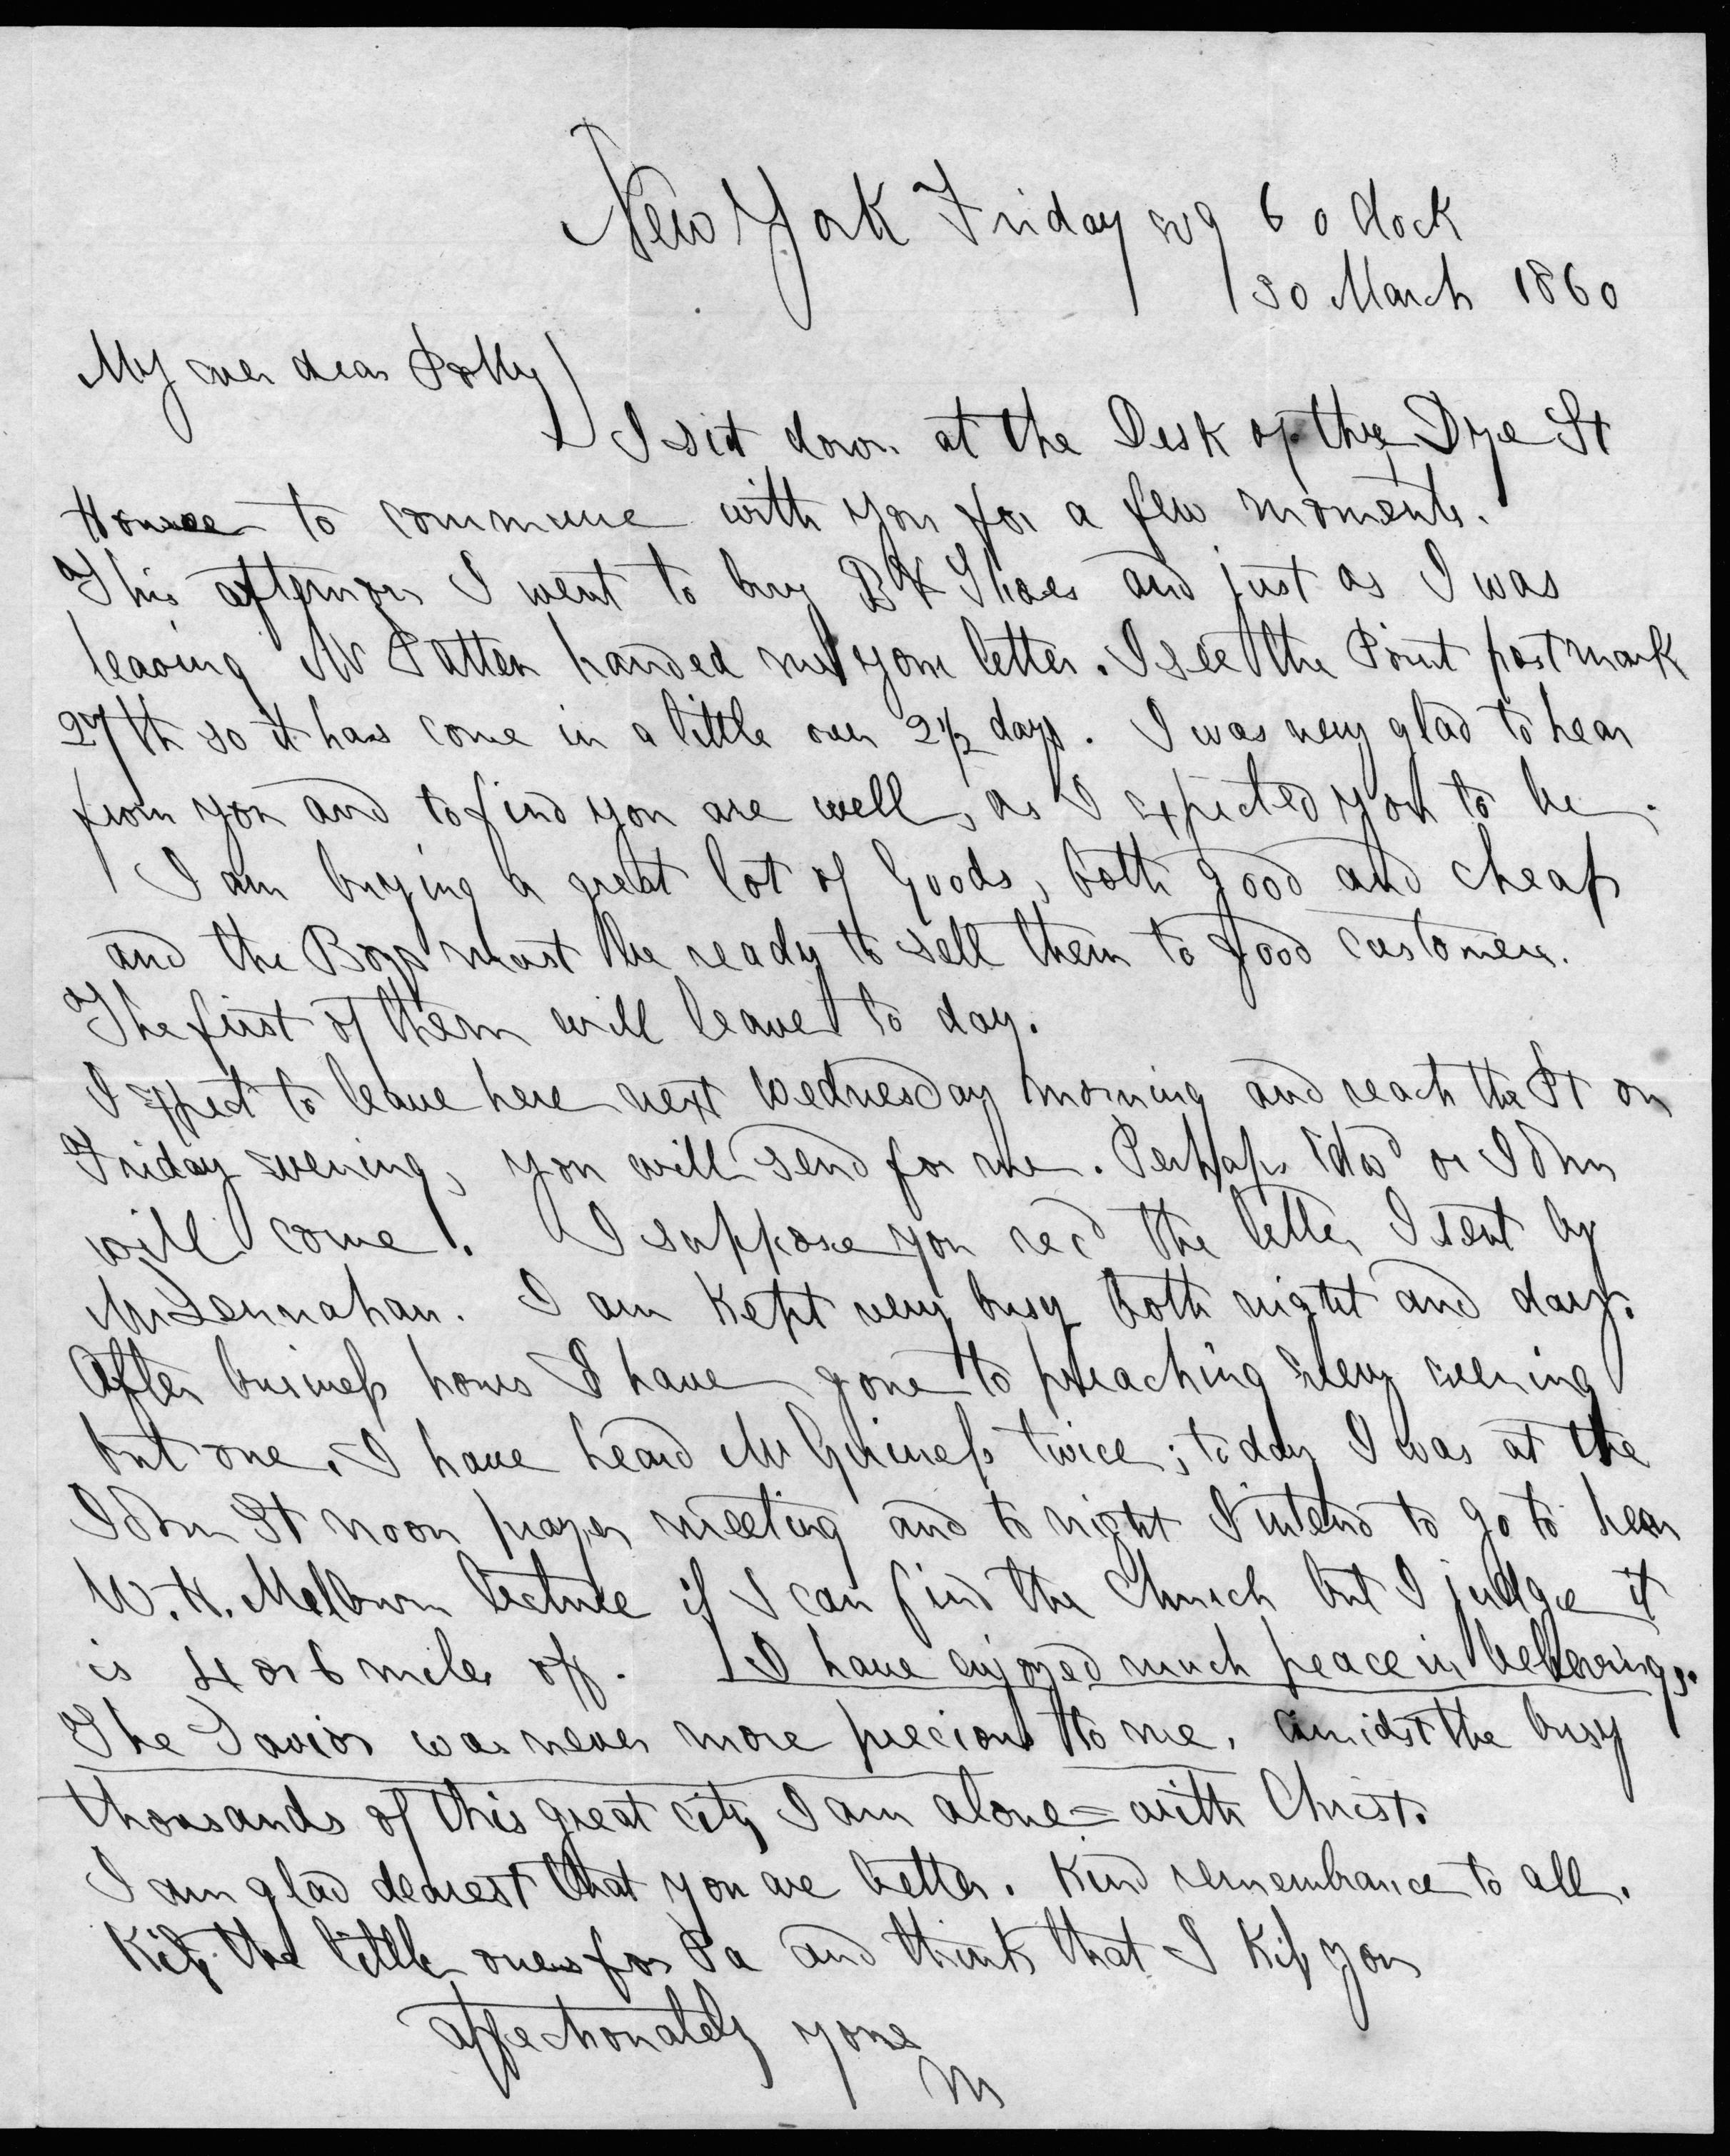 New York Friday evg 6 o clock
30 March 1860
My ever dear Polly
I sit down at the Desk of the Dye St
House to commune with you for a few moments.
This afternoon I went to buy B & Shoes and just as I was
leaving Mr Patten handed me your letter. I see the Point post mark
27th so it has come in a little over 2 1/2 days. I was very glad to hear
from you and to find you are well, as I expected you to be.
I am buying a great lot of Goods, both good and cheap
and the Boys must be ready to sell them to good customers.
The first of them will leave to day.
I expect to leave here next Wednesday morning and reach the Pt on
Friday evening, you will send for me. Perhaps or John
will come. I suppose you recd the letter I sent by
McLennahan. I am kept very busy both night and day.
After business hours I have gone to preaching every evening
but one. I have heard Mr Guiness twice; to day I was at the
John St noon prayer meeting and to night I intend to go to hear
W. H. Melburn lecture if I can find the Church but I judge it
is 4 or 6 miles off. I have enjoyed much peace in believing.
The Savior was never more precious to me, amidst the busy
thousands of this great city I am alone = with Christ.
I am glad dearest that you are better. Kind remembrance to all.
Kiss the little ones for Pa and think that I kiss you
affectionately yours
M